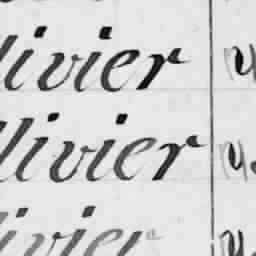 livier
llivier
ivier